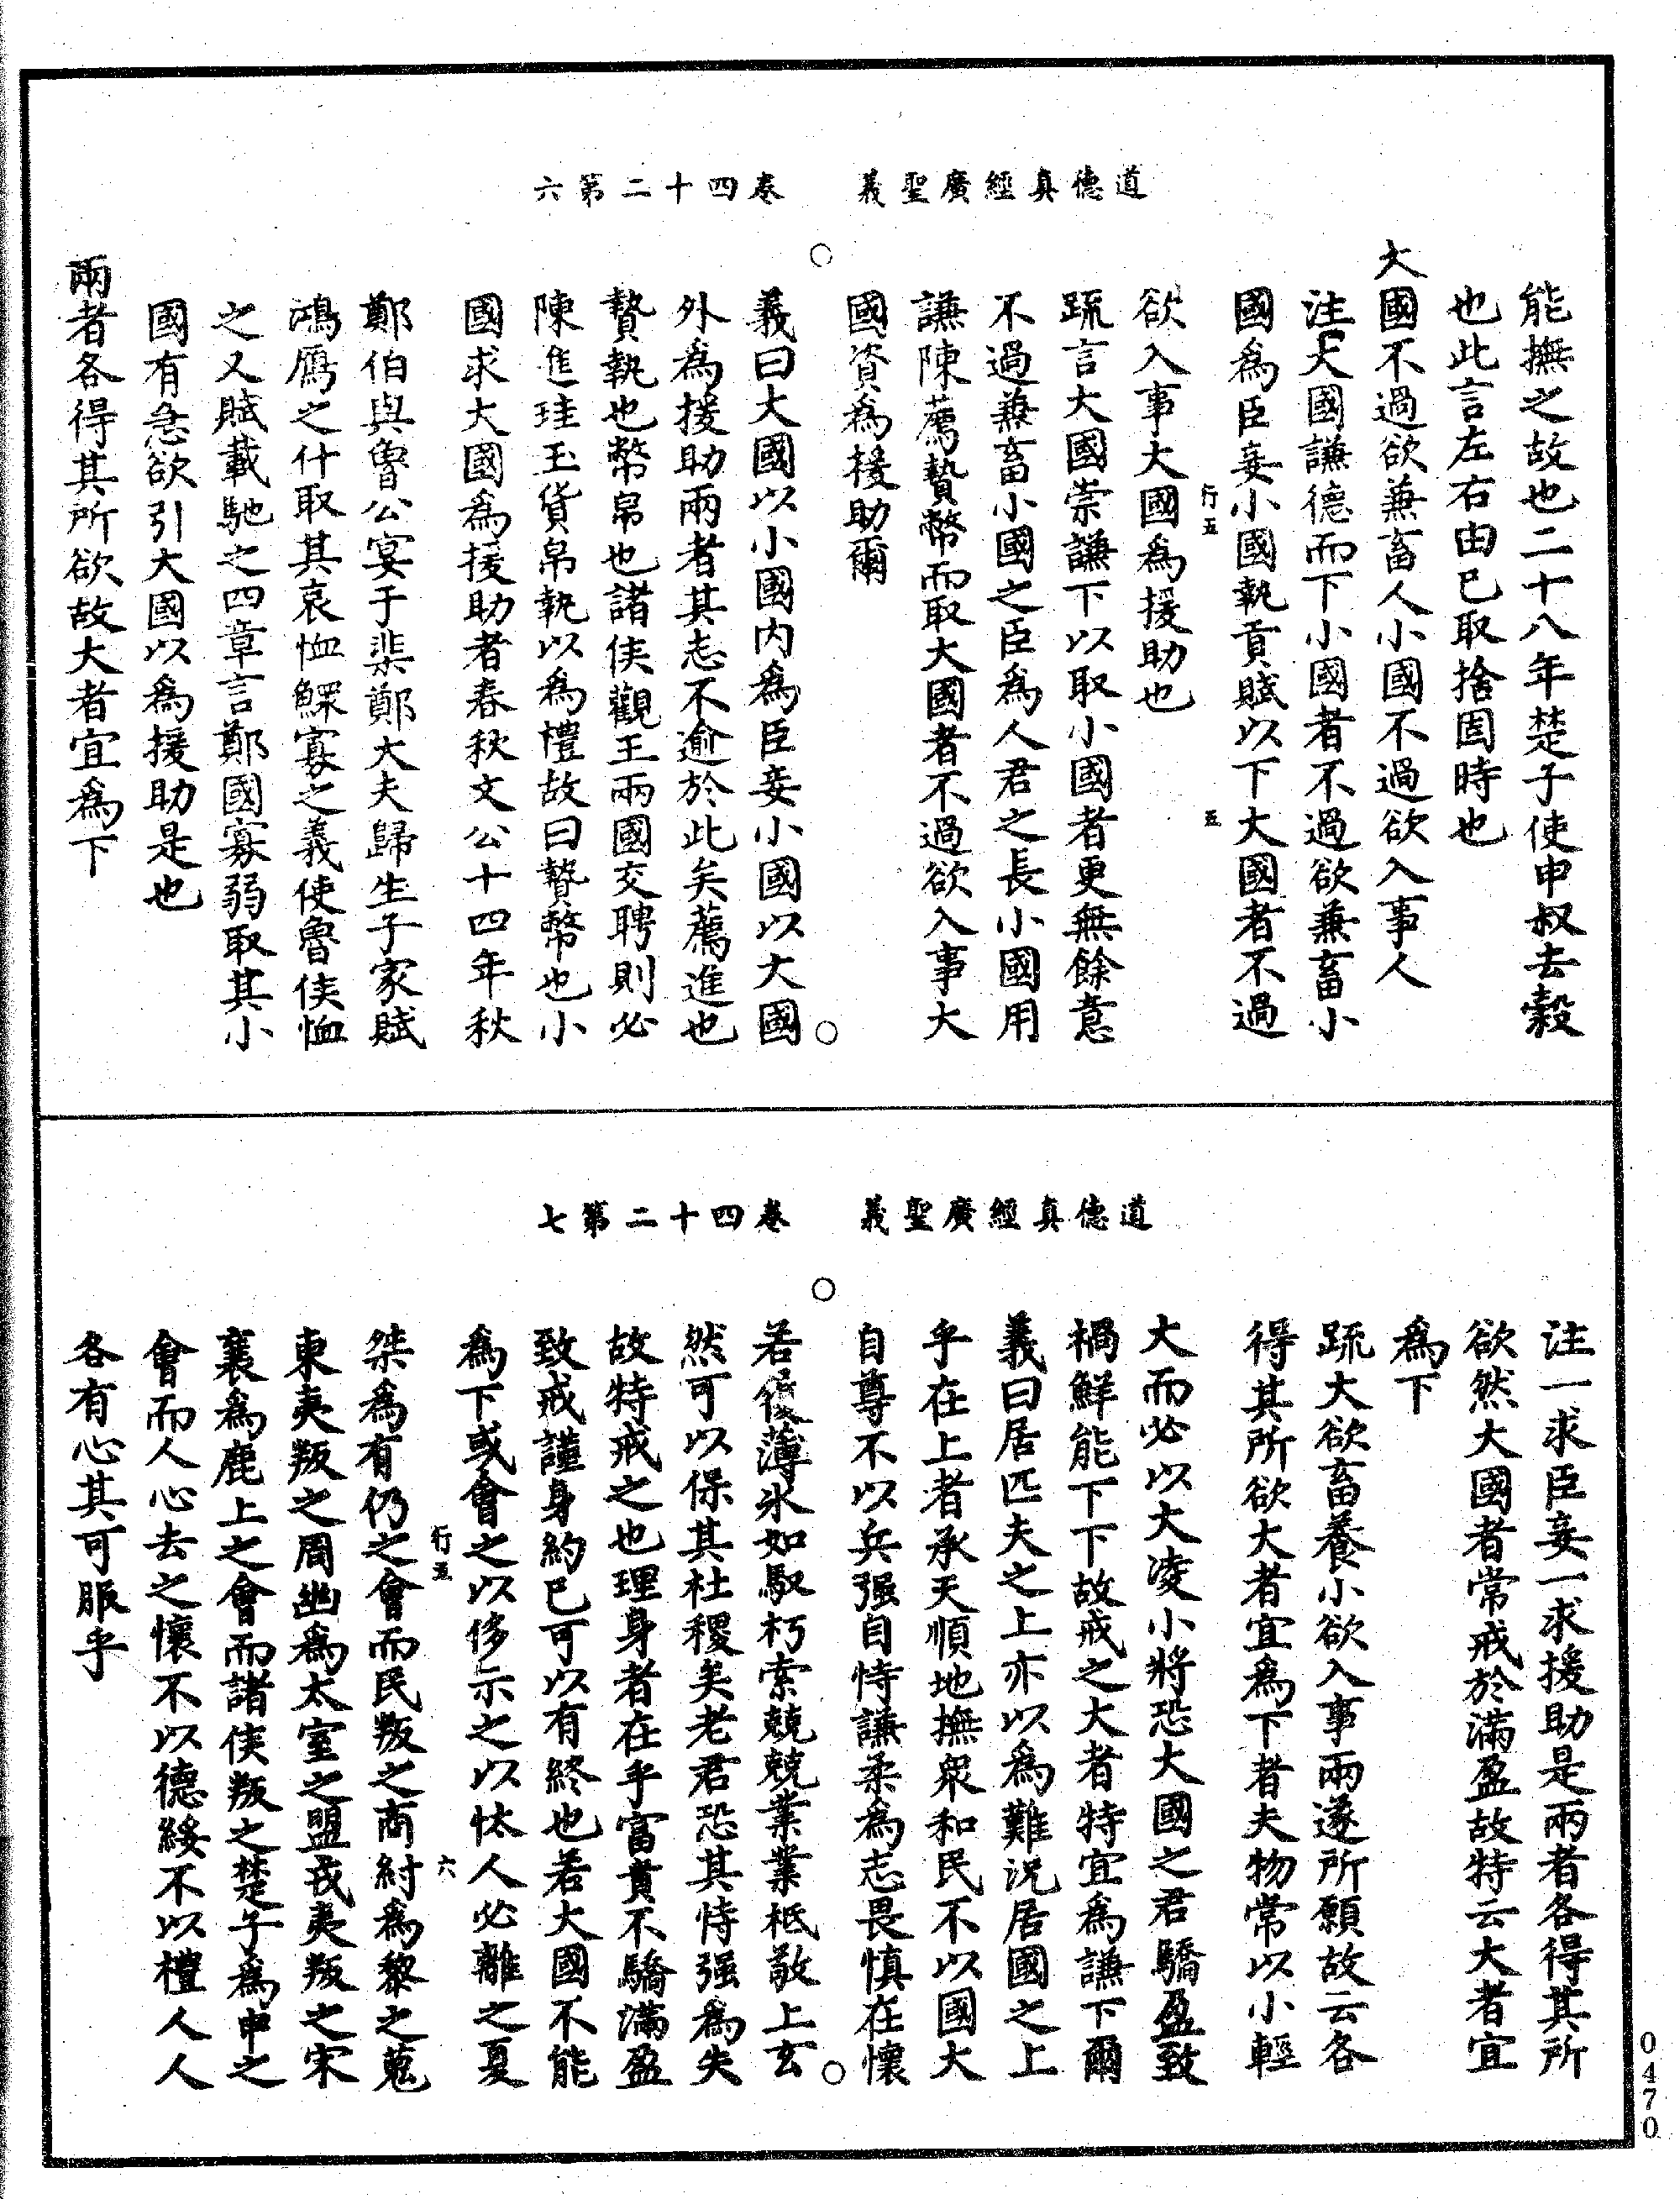 道德真經廣聖義　卷四十二第六
能撫之故也二十八年楚子使申叔去穀
也此言左右由已取捨因時也
大國不過欲兼畜人小國不過欲入事人
注大國謙德而下小國者不過欲兼畜小
國為臣妾小國執貢賦以下大國者不過
行五　五
欲入事大國為援助也
疏言大國崇謙下以取小國者更無餘意
不過兼畜小國之臣為人君之長小國用
謙陳薦贄幣而取大國者不過欲入事大
國資為援助爾
義曰大國以小國內為臣妾小國以大國
外為援助兩者其志不逾於此矣薦進也
贄執也幣帛也諸侯觀王兩國交聘則必
陳進珪玉貨帛執以為禮故曰贄幣也小
國求大國為援助者春秋文公十四年秋
鄭伯與魯公宴于棐鄭大夫歸生子家賦
鴻鴈之什取其哀恤鰥寡之義使魯侯恤
之又賦載馳之四章言鄭國寡弱取其小
國有急欲引大國以為援助是也
兩者各得其所欲故大者宜為下
道德真經廣聖義　卷四十二第七
注一求臣妾一求援助是兩者各得其所
欲然大國者常戒於滿盈故特云大者宜
為下
疏大欲畜養小欲入事兩遂所願故云各
得其所欲大者宜為下者夫物常以小輕
大而必以大凌小將恐大國之君驕盈致
禍鮮能下下故戒之大者特宜為謙下爾
義曰居匹夫之上亦以為難況居國之上
乎在上者承天順地撫眾和民不以國大
自尊不以兵强自恃謙柔為志畏慎在懷
若履薄氷如馭朽索兢兢業業祗敬上玄
然可以保其社稷矣老君恐其恃强為失
故特戒之也理身者在乎富貴不驕滿盈
致戒謹身約己可以有終也若大國不能
為下或會之以侈示之以怢人必離之夏
行五　六
桀為有仍之會而民叛之商紂為黎之蒐
東夷叛之周幽為太室之盟戎夷叛之宋
襄為鹿上之會而諸侯叛之楚子為申之
會而人心去之懷不以德綏不以禮人人
各有心其可服乎
0470